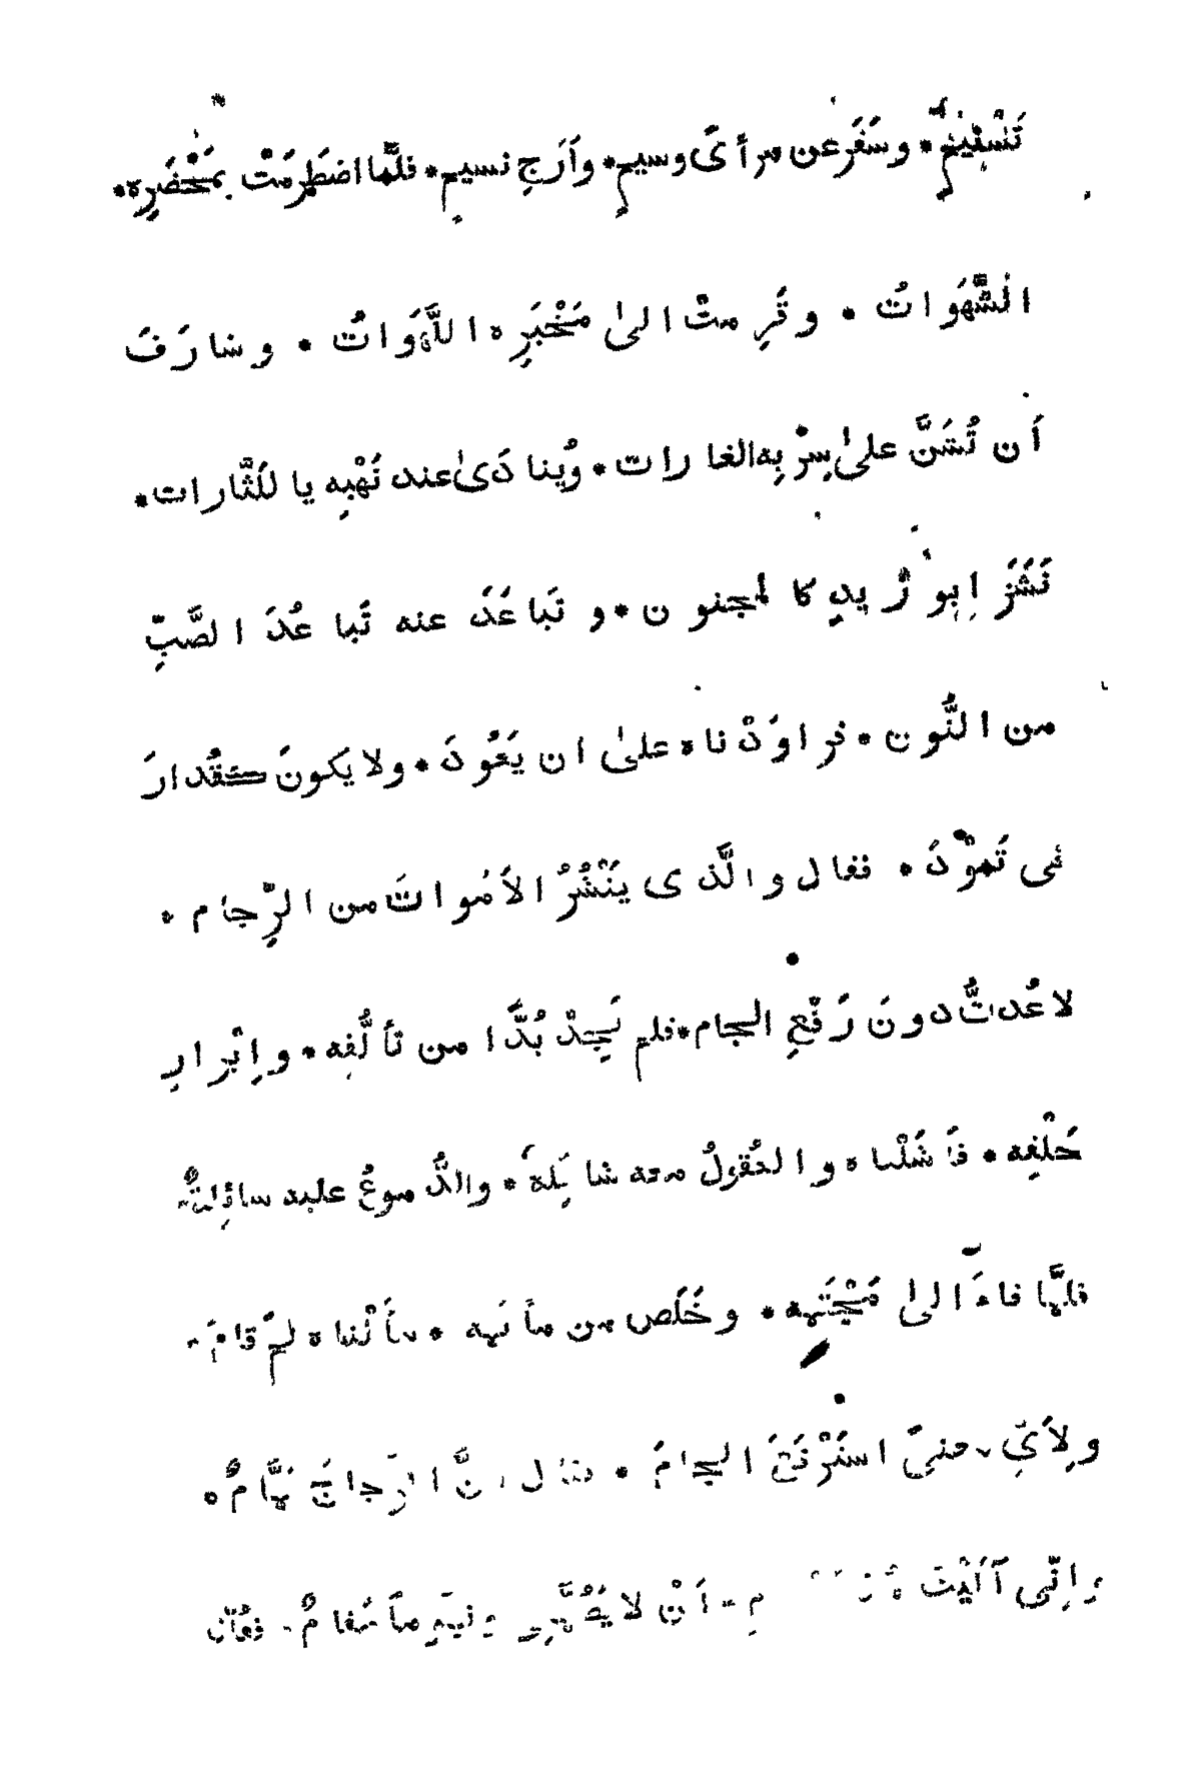 تَسْنِيمٍ * وسَفَرَ عن مرأىً وسيم * وأَرَجِ نسيم * فلمَّا اضطَرمَتْ بمَحْضَرِه *
الشَّهَوَاتُ * وقَرِمتْ الىٰ مَخْبَرِه اللَّهَوَاتُ * وشارَفَ
أَن تُشَنَّ علىٰ سِرْبِه الغارات * ويُنادَىٰ عند نَهْبِه يا للَثَّارات *
نَشَزَ ابو زَيدٍ كالمجنون * وتَباعَدَ عنه تَباعُدَ الصَّبِّ
من النُّون * فراوَدْناه علىٰ ان يَعُودَ * ولا يكونَ كقُدارَ
فى ثَموُدَ * فقال والَّذى يَنْشُرُ الاَمْواتَ من الرِّجام *
لا عُدتُّ دونَ رَفْعِ الجام * فلم نَجِدْ بُدًّا من تأَلُّفِه * واِبْرارِ
حَلْفِه * فأَشَلْناه والعُقولُ معه شائِلةٌ * والدُّموعُ عليه سائِلةٌ *
فلمَّا فاءَ الىٰ مَجْثَمِه * وخَلَص من مأثَمِه * سأَلْناه لِمَ قامَ *
ولِأَىِّ معنىً استَرْفَعَ الجامَ * فقال انَّ الزُّجاجَ نَمَّامٌ *
واِنّى آلَيْتُ مُنذُ أَنْ لا يَضُمَّنى ونَمومًا مَقامٌ * فقُلنا